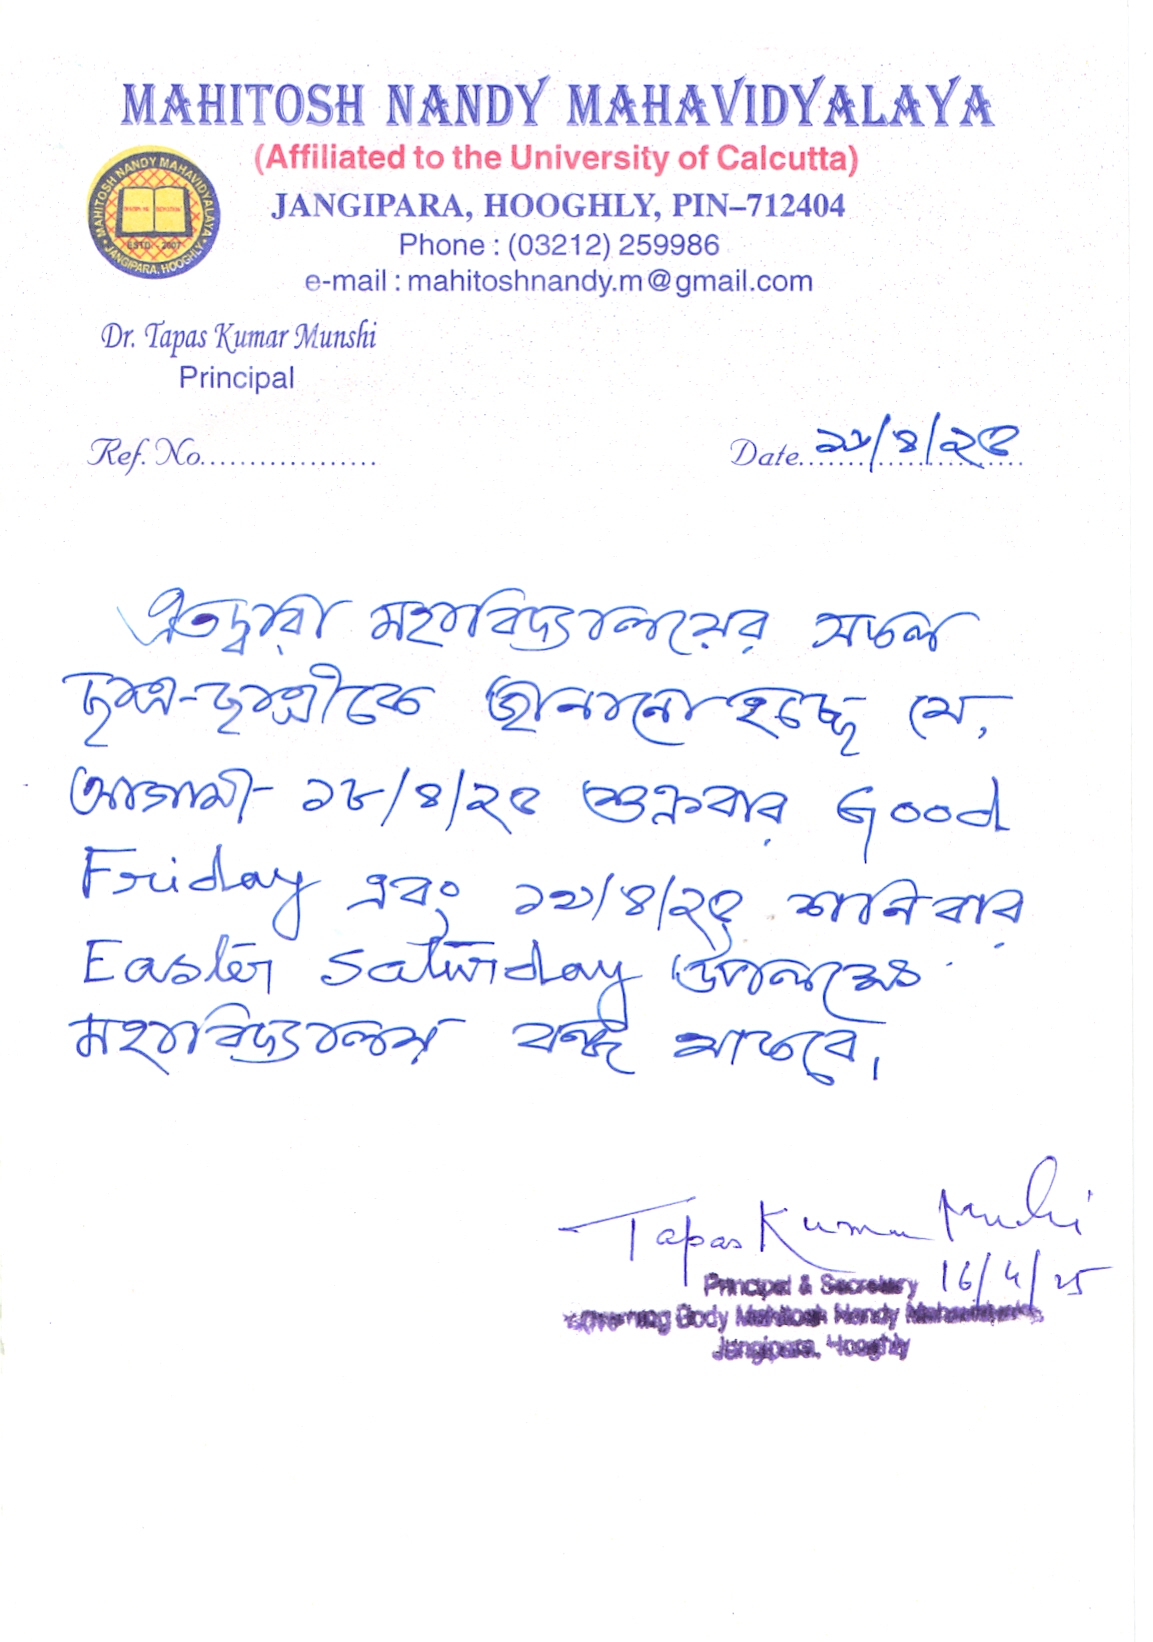 MAHITOSH NANDY MAHAVIDYALAYA
(Affiliated to the University of Calcutta)
JANGIPARA, HOOGHLY, PIN–712404
Phone : (03212) 259986
e-mail : mahitoshnandy.m@gmail.com
MAHITOSH NANDY MAHAVIDYALAYA
ESTD - 2007
JANGIPARA, HOOGHLY
Dr. Tapas Kumar Munshi
Principal
Ref. No..................
Date ১৬/৪/২৫
এতদ্বারা মহাবিদ্যালয়ের সকল
ছাত্র-ছাত্রীকে জানানো হচ্ছে যে,
আগামী ১৮/৪/২৫ শুক্রবার Good
Friday এবং ১৯/৪/২৫ শনিবার
Easter Saturday উপলক্ষে
মহাবিদ্যালয় বন্ধ থাকবে।
Tapas Kumar Munshi
16/4/25
Principal & Secretary
Governing Body Mahitosh Nandy Mahavidyalaya
Jangipara, Hooghly